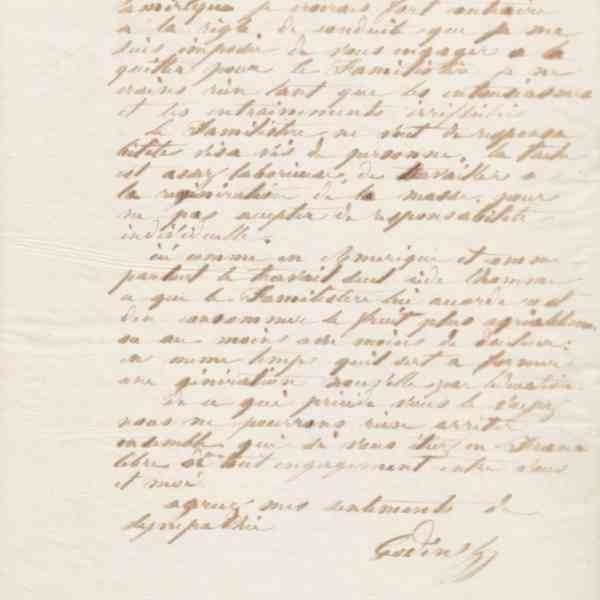 la mérique je croirais fort contraire
a la règle de conduite que je me
suis imposée de vous engager a la
quitter pour le Familistère je ne
crains rien tant que les entousiasmes
et les entrainements irréfléchis
Le Familistère ne veut de responsa
bilité visa vis de personne, la tache
est assez laborieuse de travailler a
la regénération de la masse pour
ne pas accepter de responsabilité
individuelle.
ici comme en Amerique et comme
partout le travail seul aide l'homme
ce que le Familistère lui accorde c'est
d'en consommer le fruit plus agréablement
ou au moins avec moins de
en meme temps qu'il sert a former
une génération nouvelle par l'éducation
En ce qui précède vous le voyez
nous ne pourrons rien arrêter
ensemble qui si vous étiez en France
libre de tout engagement entre vous
et moi
agréez mes sentiments de
sympathie
Godin